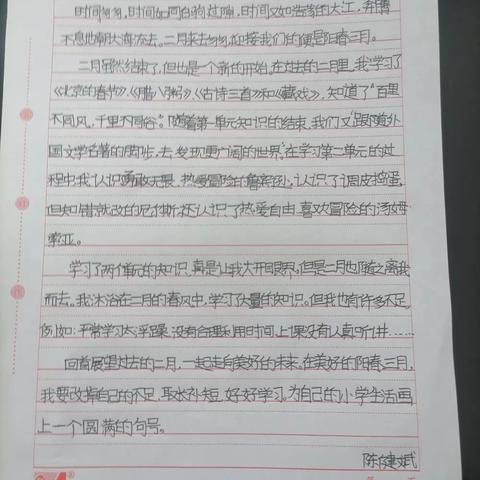 时间匆匆，时间如同白驹过隙，时间又如浩荡的大江，奔腾
不息地朝大海流去。二月来去匆匆，迎接我们的便是阳春三月。
二月虽然结束了，但也是一个新的开始，在过去的二月里，我学习了
《北京的春节》、《腊八粥》、《古诗三首》和《藏戏》，知道了“百里
不同风，千里不同俗”。随着第一单元知识的结束，我们又“跟随外
国文学名著的脚步，去发现更广阔的世界”，在学习第二单元的过
程中我认识勇敢无畏、热爱冒险的鲁滨孙，认识了调皮捣蛋，
但知错就改的尼尔斯，还认识了热爱自由，喜欢冒险的汤姆·
索亚。
学习了两个单元的知识，真是让我大开眼界。但是二月也随之离我
而去。我沐浴在二月的春风中，学习大量的知识。但我也有许多不足，
例如：平常学习太浮躁，没有合理利用时间，上课没有认真听讲……
回首展望过去的二月，一起走向美好的未来。在美好的阳春三月，
我要改掉自己的不足，取长补短，好好学习，为自己的小学生活画
上一个圆满的句号。
陈健斌